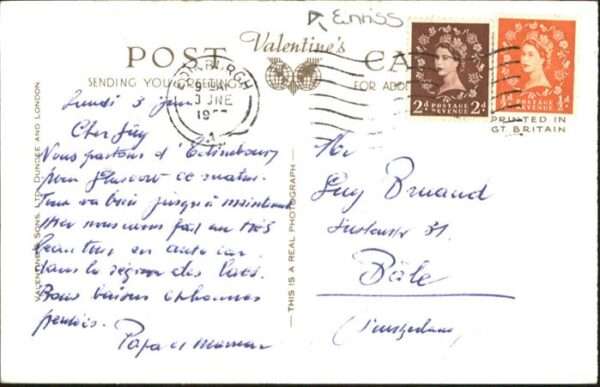 Enniss
POST Valentine's CARD
SENDING YOUR GREETINGS
FOR ADD
EDINBURGH
3 JNE
2d POSTAGE REVENUE 2d
POSTAGE REVENUE ½d
PRINTED IN
GT BRITAIN
VALENTINE & SONS, LTD. DUNDEE AND LONDON
THIS IS A REAL PHOTOGRAPH
Lundi 3 juin
Cher Guy
Nous partons d'Edimbourg
pour Glascow ce matin.
Tout va bien jusqu'à maintenant
Hier nous avons fait un très
beau tour en auto car
dans la région des lacs.
Bons baisers et bonnes
pensées.
Papa et maman
Mr
Guy Bruand
31.
Bâle